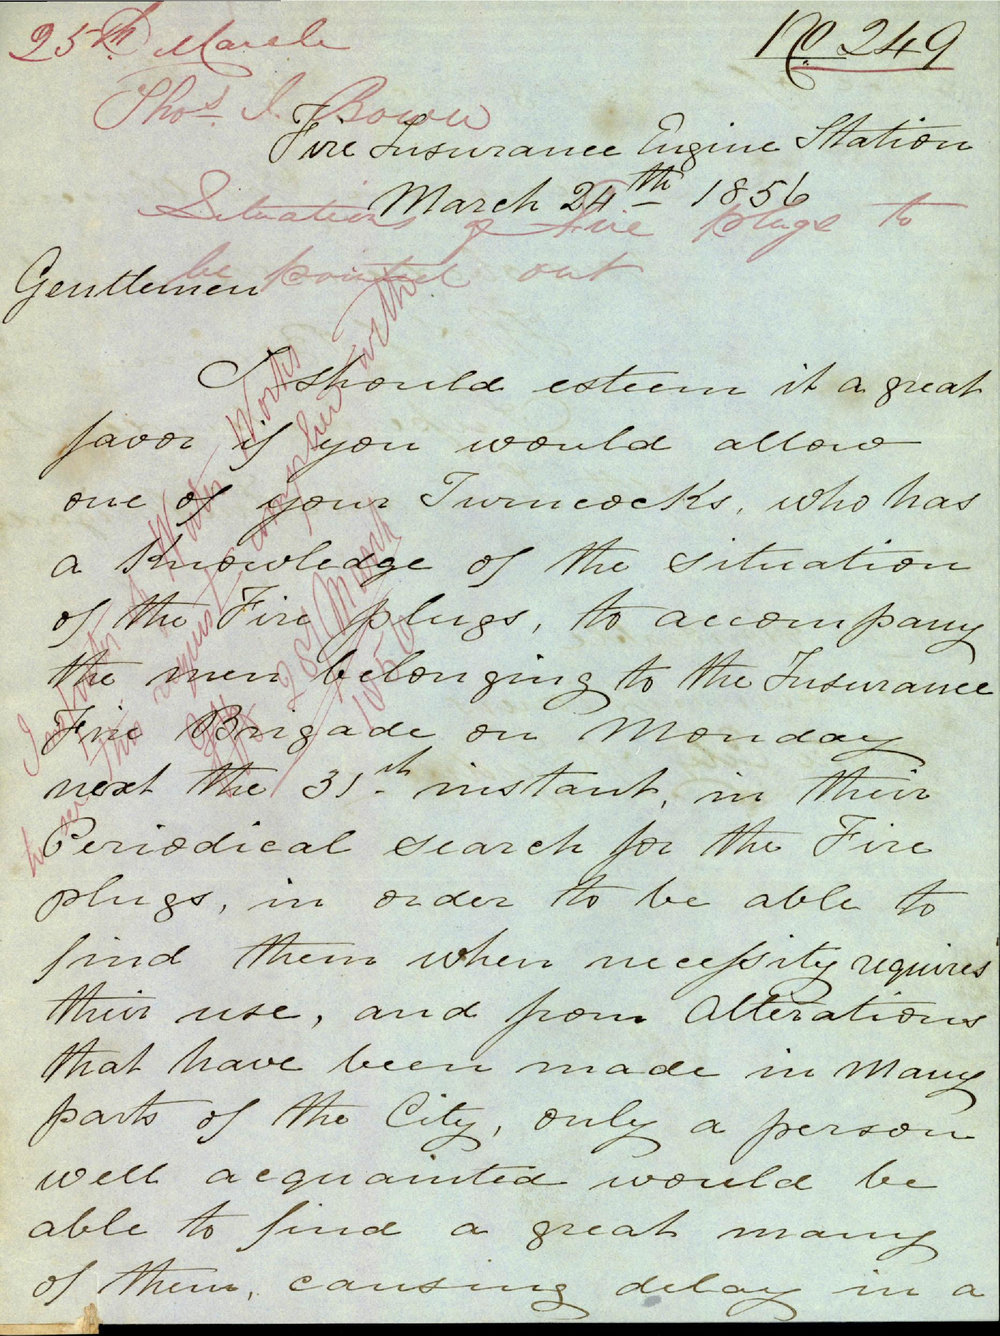 25th March
No 249
Thos. J. Bown
Fire Insurance Engine Station
March 24th 1856
Situation of Fire plugs to
be pointed out
Gentlemen
I should esteem it a great
favor if you would allow
one of your Turncocks, who has
a Knowledge of the situation
of the Fire plugs, to accompany
the men belonging to the Insurance
Fire Brigade on Monday
next the 31st instant, in their
Periodical search for the Fire
plugs, in order to be able to
find them when necessity requires
their use, and from Alterations
that have been made in Many
parts of the City, only a person
well acquainted would be
able to find a great many
of them, causing delay in a
Water Works
to see this request complied with
28 March
1856